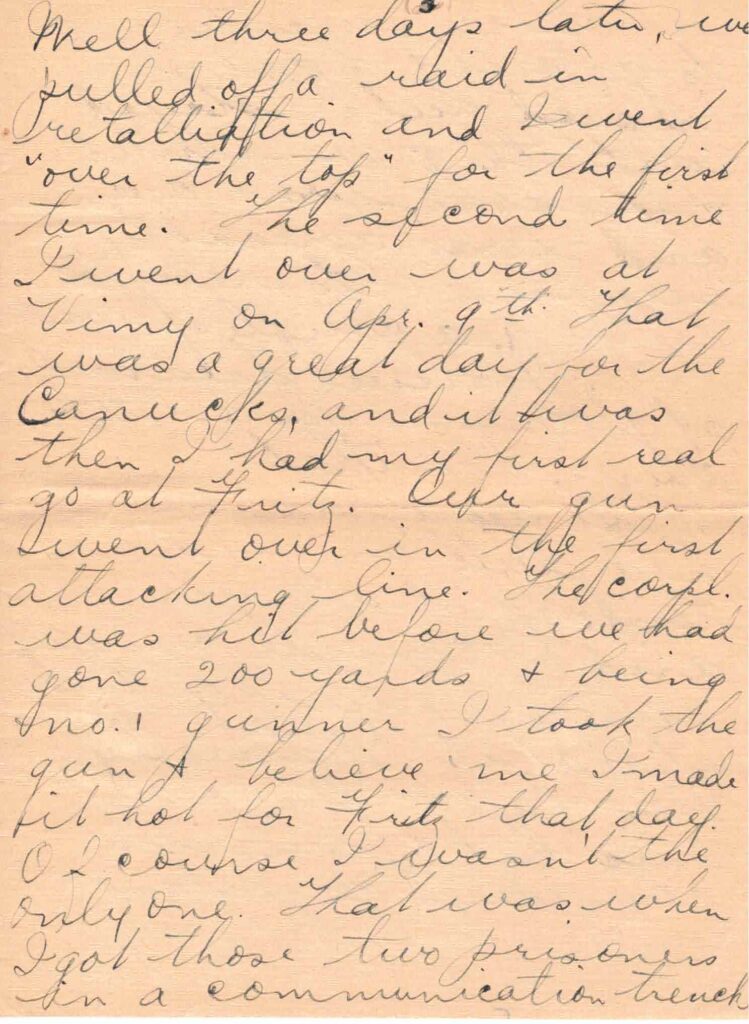 Well three days later, we
pulled off a raid in
retalliation and I went
"over the top" for the first
time. The second time
I went over was at
Vimy on Apr. 9th. That
was a great day for the
Canucks, and it was
then I had my first real
go at Fritz. Our gun
went over in the first
attacking line. The corpl.
was hit before we had
gone 200 yards & being
no. 1 gunner I took the
gun & believe me I made
it hot for Fritz that day.
Of course I wasn't the
only one. That was when
I got those two prisoners
in a communication trench